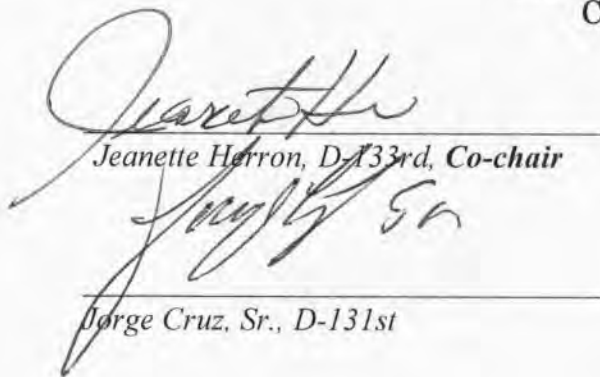 C
Jeanet H
Jeanette Herron, D-133rd, Co-chair
Sr
Jorge Cruz, Sr., D-131st